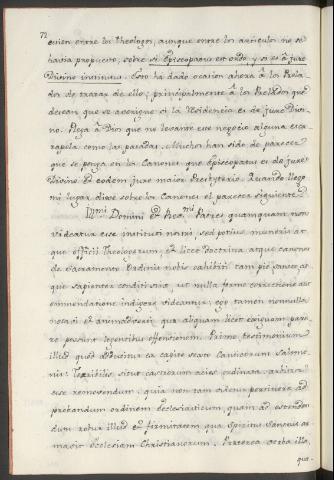 72
cusion entre los theologos, aunque entre los articulos no se
havia propuesto, sobre si Episcopatus est ordo, y si es à jure
Divino institutus. Esto ha dado ocasion ahora à los Prela-
dos de tratar de ello; principalmente à los Prelados que
desean que se averigue si la Residencia es de jure Divi-
no. Plega à Dios que no levante este negocio alguna esca-
rapela como las pasadas. Muchos han sido de parecer
que se ponga en los Canones que Episcopatus es de jure
Divino. Et eodem jure maior Presbyterio. Quando llegó
mi lugar dixe sobre los Canones el parecer siguiente
Illmi. Domini et Rev. mi Patres quamquam non
videatur esse instituti nostri, sed potius muneris at
que officii Theologorum, et licet doctrina atque canones
de Sacramento Ordinis nobis exhibiti tam pie
que sapienter conditi sint, ut nulla forme correctione aut
emmendatione indigere videantur; ego tamen nonnulla
notavi et animadverti, quæ aliquam licet exiguam pare-
re possunt legentibus offensionem. Primo testimonium
illud quod adducitur ca capite sexto Canticorum Salomo-
nis: Terribilis sicut castrorum acies ordinata, arbitror
esse removendum: quia non tam videtur pertinere ad
probandum ordinem ecclesiasticum, quam ad ostenden
dum robur illud et firmitatem qua Spiritus Sanctus ar-
mavit ecclesiam Christianorum. Præterea verba illa,
quæ-